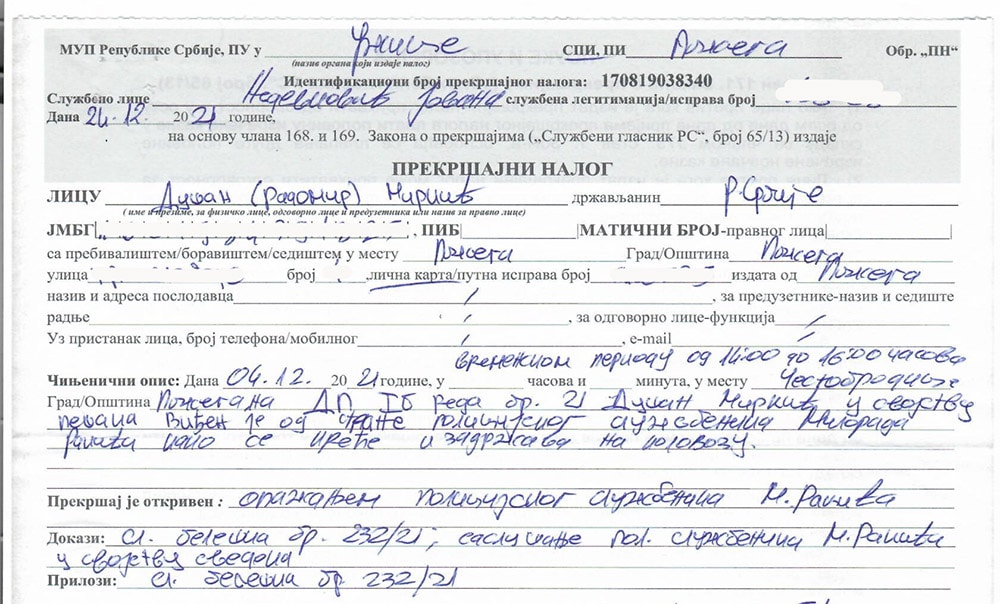 МУП Републике Србије, ПУ у Ужице СПИ, ПИ Пожега Обр. „ПН“
(назив органа који издаје налог)
Идентификациони број прекршајног налога: 170819038340
Службено лице Недељковић Јована службена легитимација/исправа број
Дана 24.12. 2021 године,
на основу члана 168. и 169. Закона о прекршајима („Службени гласник РС“, број 65/13) издаје
ПРЕКРШАЈНИ НАЛОГ
ЛИЦУ Душан (Радомир) Миркић држављанин Р. Србије
( име и презиме, за физичко лице, одговорно лице и предузетника или назив за правно лице)
ЈМБГ , ПИБ МАТИЧНИ БРОЈ-правног лица
са пребивалиштем/боравиштем/седиштем у месту Пожега Град/Општина Пожега
улица број , лична карта/путна исправа број издата од Пожега
назив и адреса послодавца / , за предузетнике-назив и седиште
радње / , за одговорно лице-функција /
Уз пристанак лица, број телефона/мобилног / , e-mail /
временском периоду од 14:00 до 16:00 часова
Чињенични опис: Дана 04.12. 2021 године, у часова и минута, у месту Честобродица
Град/Општина Пожега на ДП IБ реда бр. 21 Душан Миркић у својству
пешака виђен је од стране полицијског службеника Милорада
Ракића како се креће и задржава на коловозу.
Прекршај је откривен : опажањем полицијског службеника М. Ракића
Докази: сл. белешка бр. 232/21; саслушање пол. службеника М. Ракића
у својству сведока
Прилози: сл. белешка бр. 232/21